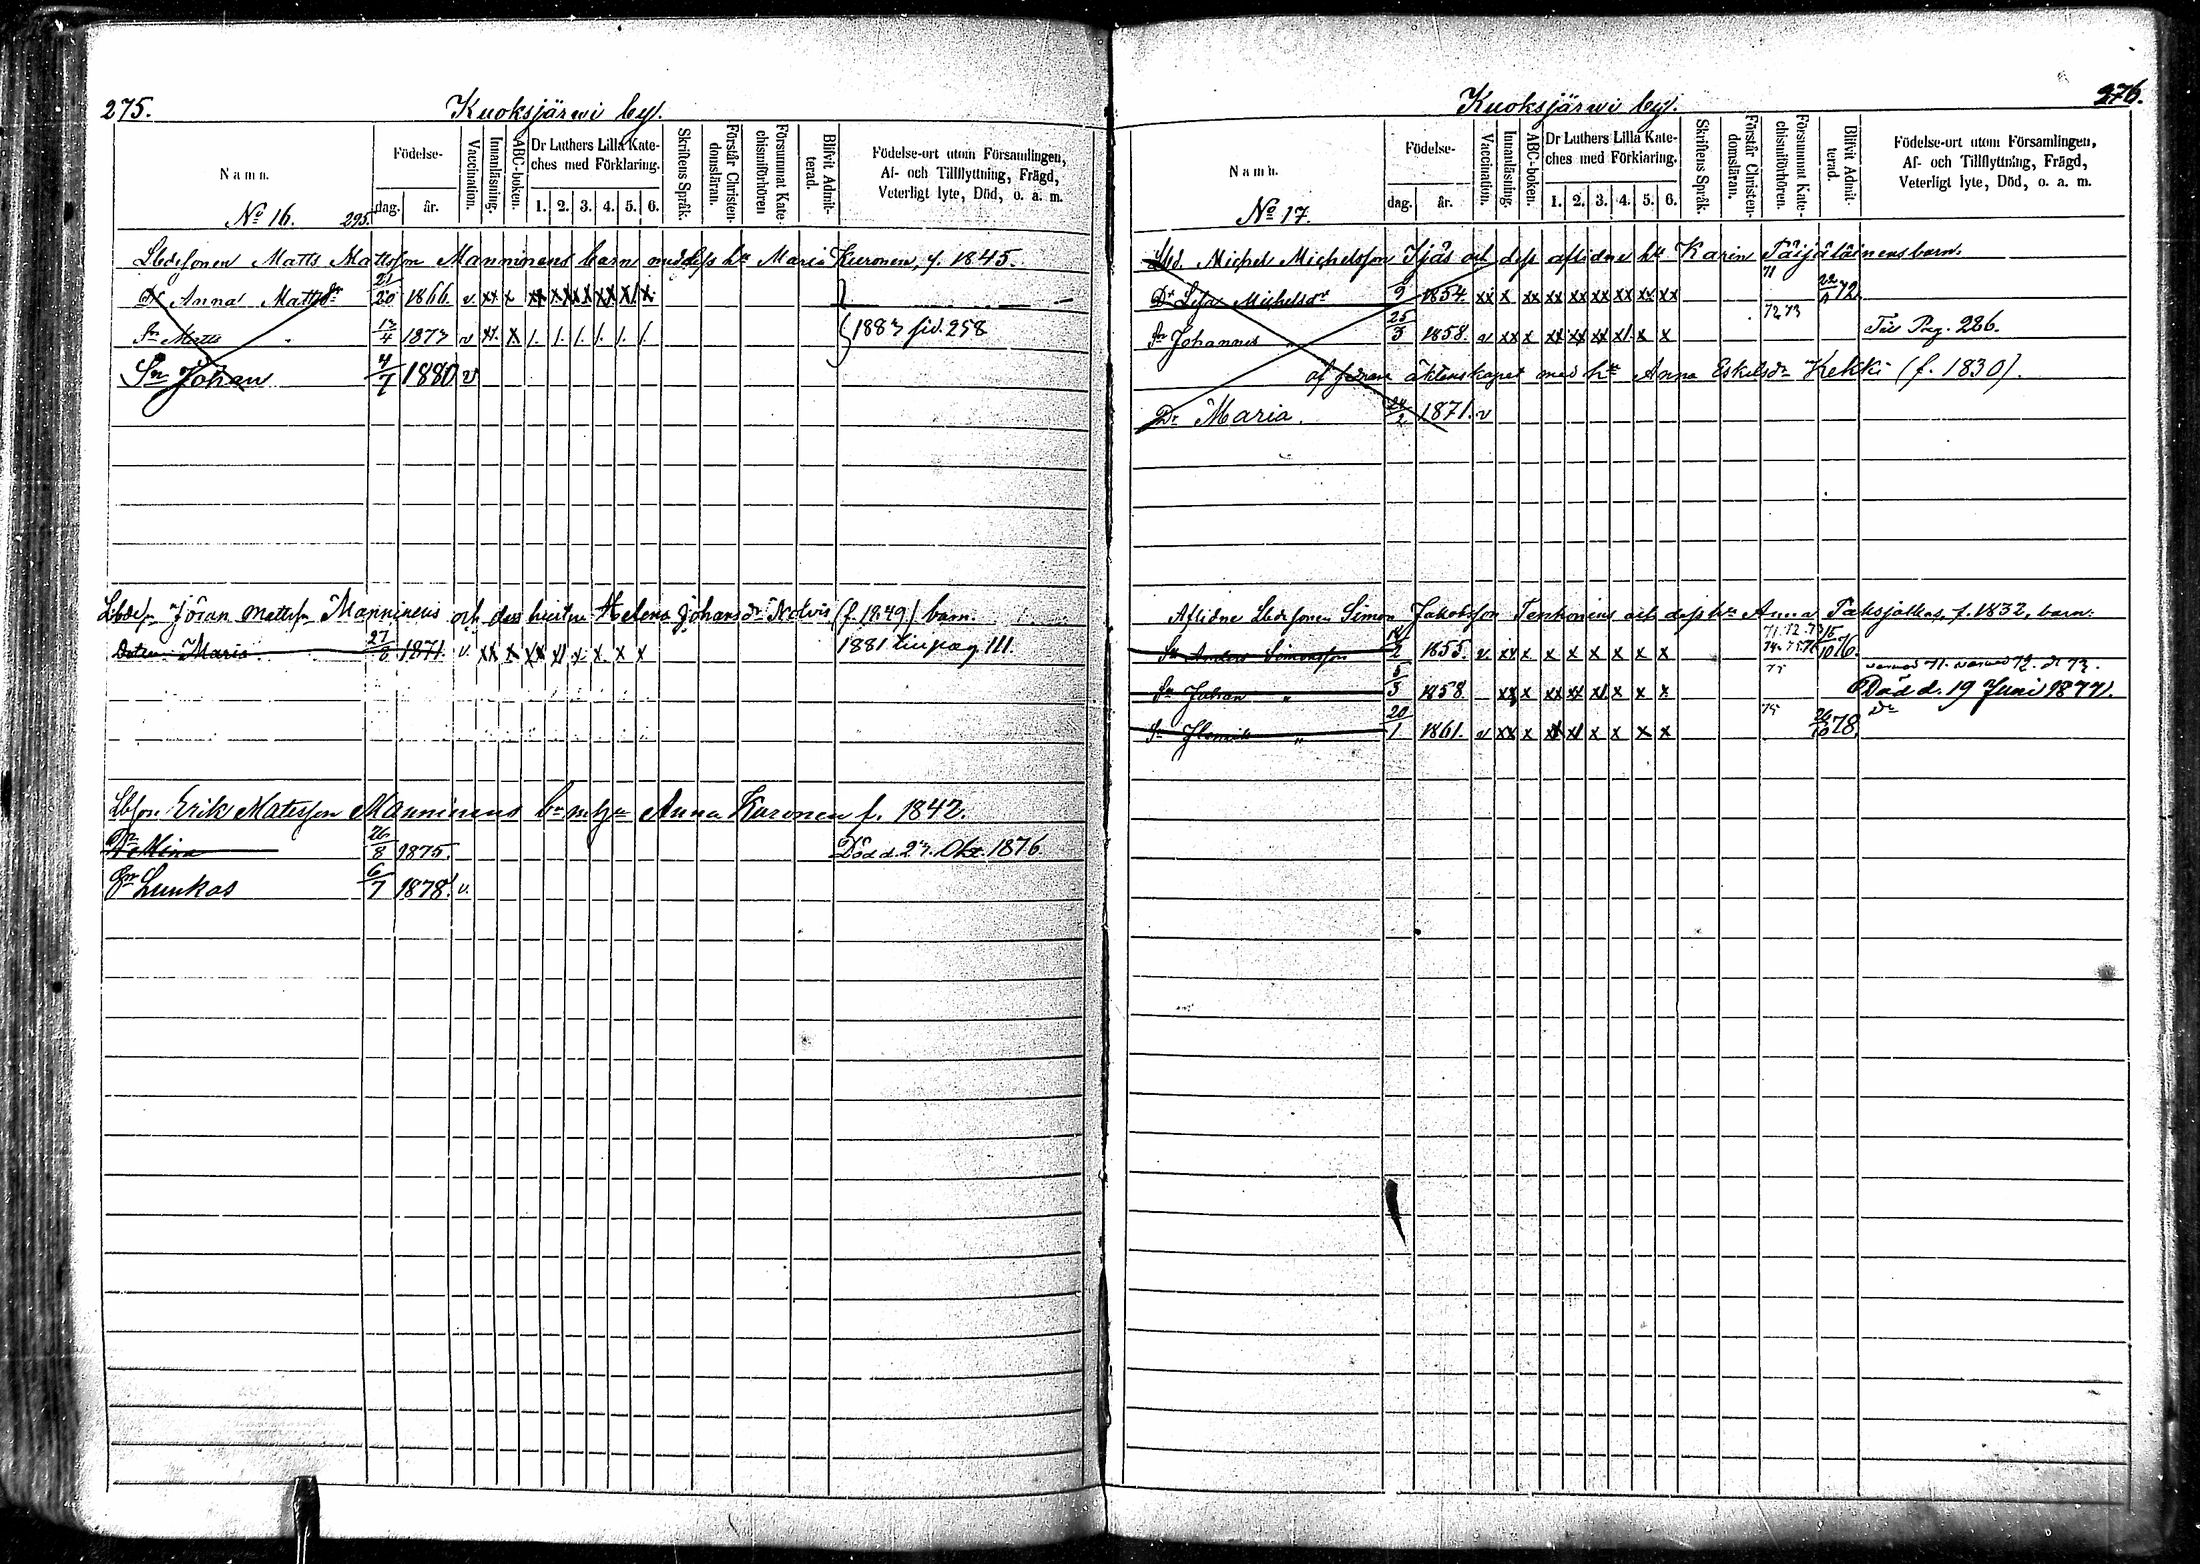 275.
Kuoksjärwi by.
Namn.
Födelse-
dag.
år.
Vaccination.
Innanläsning.
ABC-boken.
Dr Luthers Lilla Kate-
ches med Förklaring.
1. 2. 3. 4. 5. 6.
Skriftens Språk.
Förstår Christen-
domsläran.
Försummat Kate-
chismiförhören
Blifvit Admit-
terad.
Födelse-ort utom Församlingen,
Af- och Tillflyttning, Frägd,
Veterligt lyte, Död, o. a. m.
No 16. 295.
Lbdsonen Matts Mattsson Manninens barn med dess h. Maria Kuronen, f. 1845.
Anna Mattsdr 20 1866. v. xx x xx xx xx xx x/ x
Sn Matts 13/4 1873 v x/. x /. /. /. /. /. /. 1883 sid. 258
Sn Johan 4/7 1880 v
Lbdsn Jöran Mattsn Manninens och dess hustru Helena Johansdr Nolvis (f. 1849) barn.
Dotter Maria 27/8 1871 v. xx x xx x/ x x x x 1881 till pag 111.
Lbson Erik Matsson Manninens bn m hu Anna Kuronen f. 1842.
Dr Mina 26/8 1875. Död d. 27. Okt. 1876.
Sn Lunkas 6/7 1878. v.
276.
Kuoksjärwi by.
Namn.
Födelse-
dag.
år.
Vaccination.
Innanläsning.
ABC-boken.
Dr Luthers Lilla Kate-
ches med Förklaring.
1. 2. 3. 4. 5. 6.
Skriftens Språk.
Förstår Christen-
domsläran.
Försummat Kate-
chismiförhören.
Blifvit Admit-
terad.
Födelse-ort utom Församlingen,
Af- och Tillflyttning, Frägd,
Veterligt lyte, Död, o. a. m.
No 17.
Lbd. Michel Michelsson Ijäs och dess aflidne h. Karin Päijäläinens barn.
Dr Lisa Michelsdr 9 1854 xx x xx xx xx xx xx xx 71 72
Sn Johannes " 25/3 1858. v xx x xx xx xx x/. x x 72 73 Till Pag. 286.
af äktenskapet med h. Anna Eskelsdr Kekki (f. 1830).
Dr Maria. 24/2 1871. v
Aflidne Lbdsonen Simon Jakobsson Tenhonens och dess h. Anna f. 1832, barn:
Sn Anders Simonsson 14/2 1855. v. xx x x x x x x x 71. 72. 73 76.
Sn Johan " 5/3 1858 xx x xx xx x/ x x x 75 Död d. 19 Juni 1877.
Sn Henrik " 20/1 1861. v xx x x/ x/ x x x x 75 26/10 78. dn